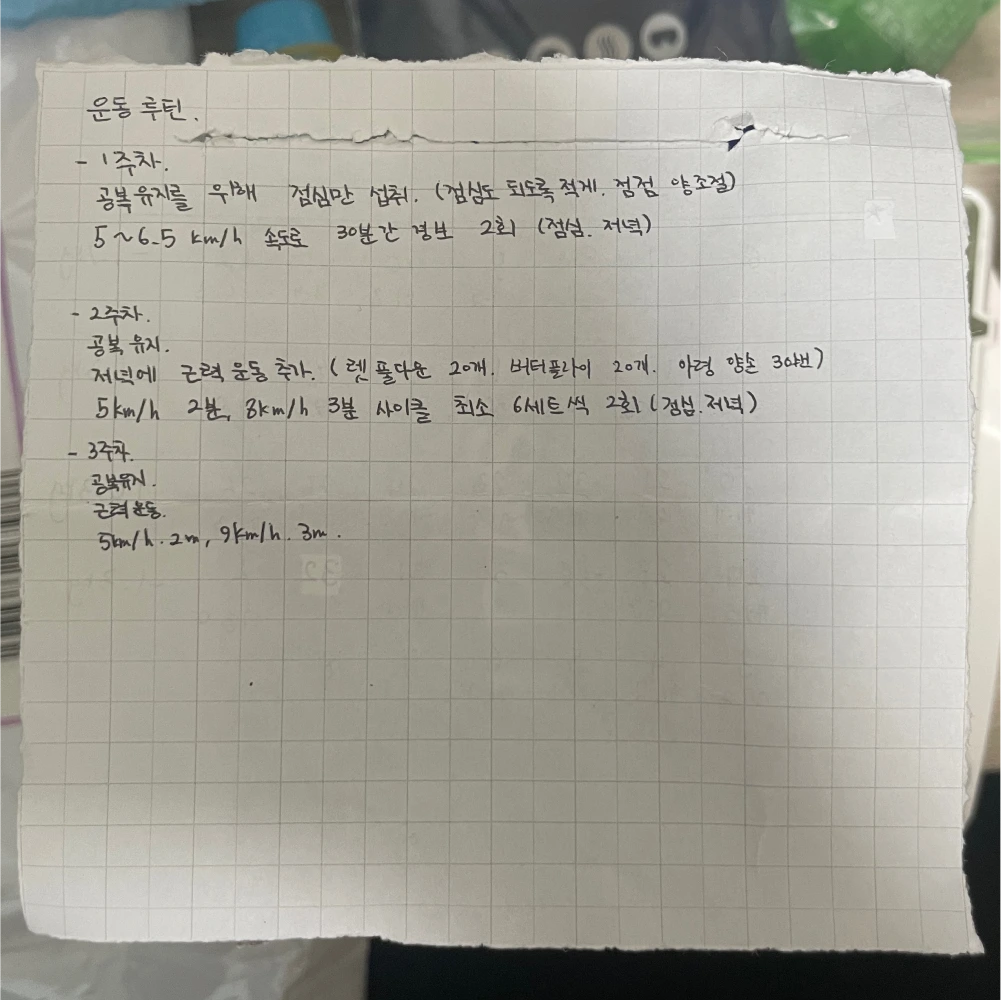 운동 루틴.
- 1주차.
공복유지를 위해 점심만 섭취. (점심도 되도록 적게. 점점 양조절)
5~6.5 km/h 속도로 30분간 경보 2회 (점심. 저녁)
- 2주차.
공복 유지.
저녁에 근력 운동 추가. (렛 풀다운 20개. 버터플라이 20개. 아령 양손 30번)
5km/h 2분, 8km/h 3분 사이클 최소 6세트씩 2회 (점심.저녁)
- 3주차.
공복유지.
근력 운동.
5km/h. 2m, 9km/h. 3m.